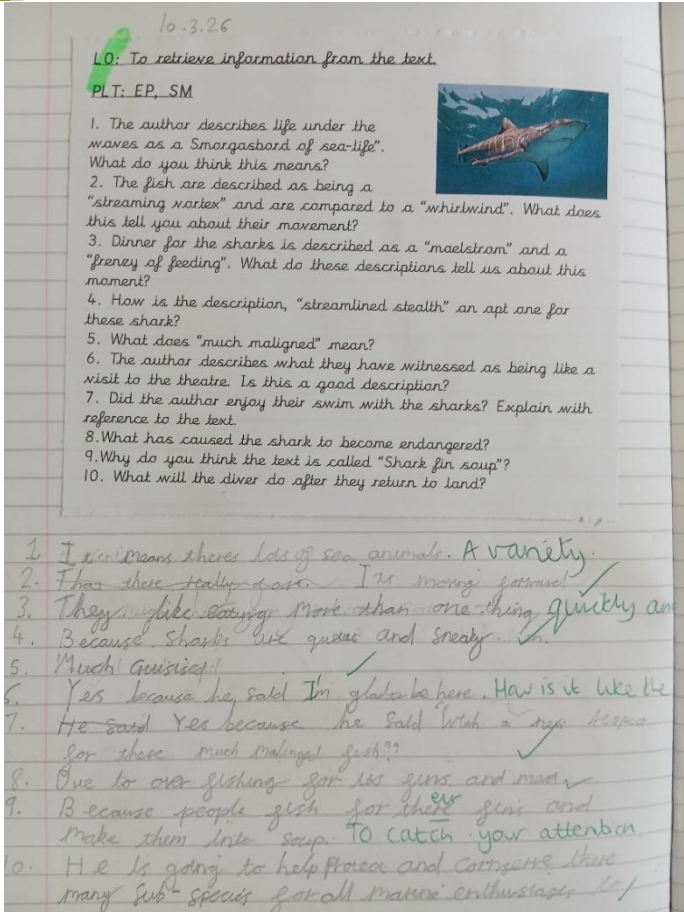 10.3.26
LO: To retrieve information from the text.
PLT: EP, SM
1. The author describes life under the
waves as a Smorgasbord of sea-life".
What do you think this means?
2. The fish are described as being a
"streaming vortex" and are compared to a "whirlwind". What does
this tell you about their movement?
3. Dinner for the sharks is described as a "maelstrom" and a
"frenzy of feeding". What do these descriptions tell us about this
moment?
4. How is the description, "streamlined stealth" an apt one for
these shark?
5. What does "much maligned" mean?
6. The author describes what they have witnessed as being like a
visit to the theatre. Is this a good description?
7. Did the author enjoy their swim with the sharks? Explain with
reference to the text.
8.What has caused the shark to become endangered?
9.Why do you think the text is called "Shark fin soup"?
10. What will the diver do after they return to land?
1 I means theres lots of sea animals. A variety.
2. That there really Its moving forward
3. They like eating more than one thing quickly an
4. Because sharks are and sneaky.
5. Much
6. Yes because he said I'm glad to be here. How is it like the
7. He said Yes because he said with a new
for these much malinged fish??
8. Due to over fishing for its fins and
9. Because people fish for their fins and
make them into soup. To catch your attention
10. He is going to help Protect and there
many sub-species for all marine